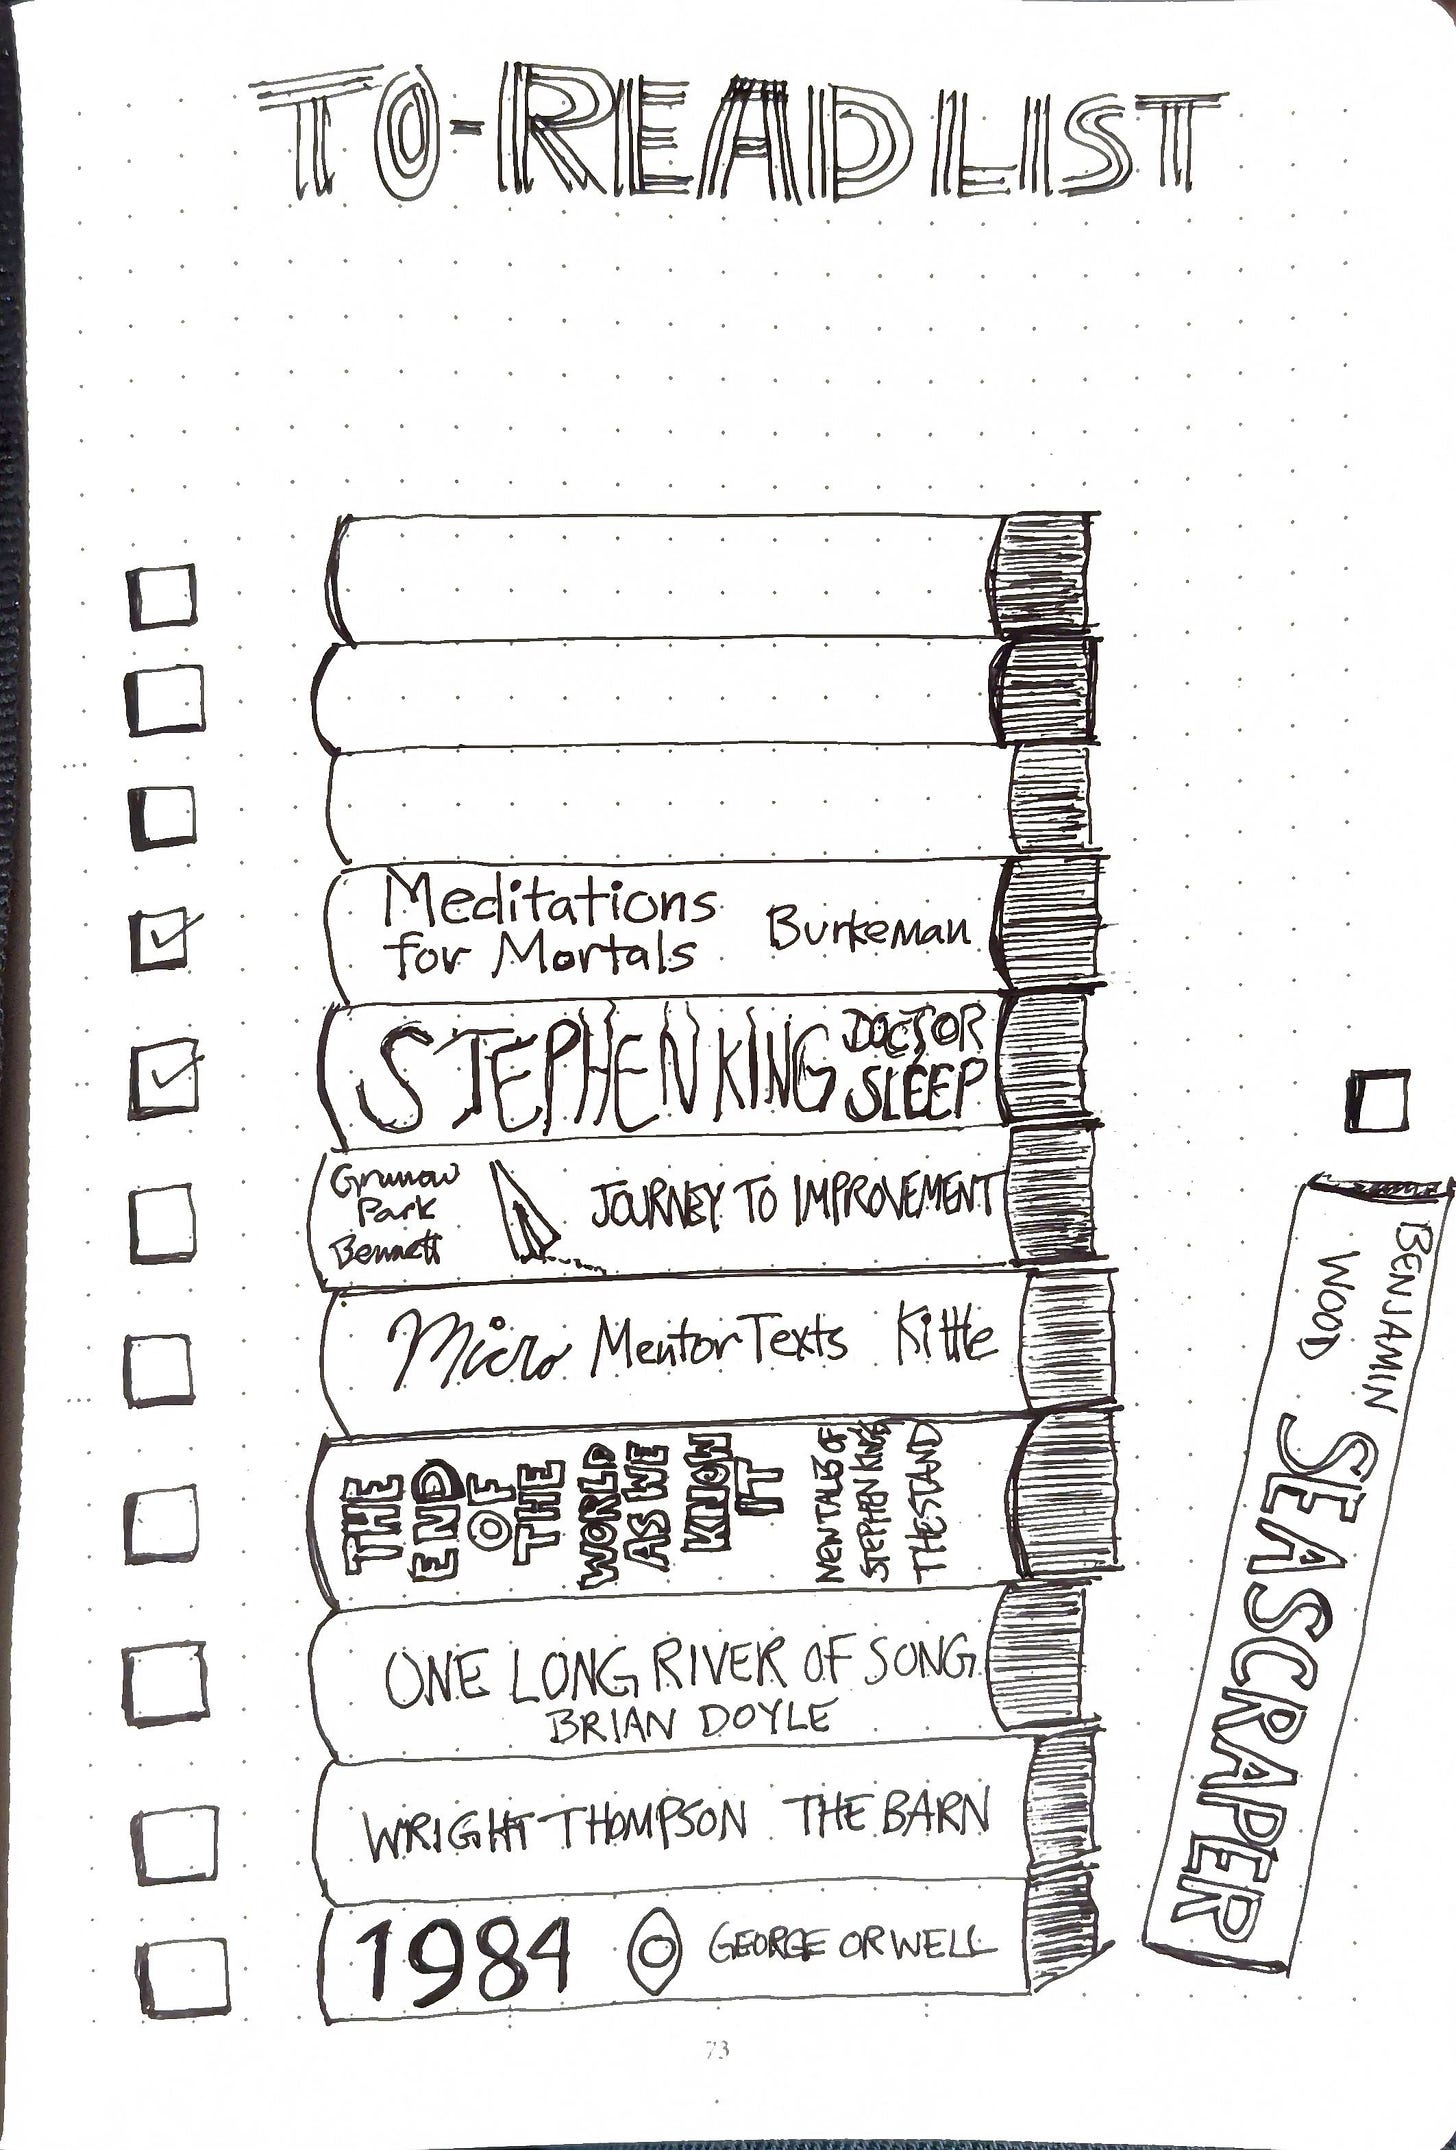 TO-READ LIST
Meditations
for Mortals
Burkeman
STEPHEN KING
DOCTOR
SLEEP
Grunow
Park
Bennett
JOURNEY TO IMPROVEMENT
Micro Mentor Texts Kittle
THE
END
OF
THE
WORLD
AS WE
KNOW
IT
NEW TALES OF
STEPHEN KING'S
THE STAND
ONE LONG RIVER OF SONG
BRIAN DOYLE
WRIGHT THOMPSON THE BARN
1984 GEORGE ORWELL
BENJAMIN
WOOD
SEASCRAPER
73